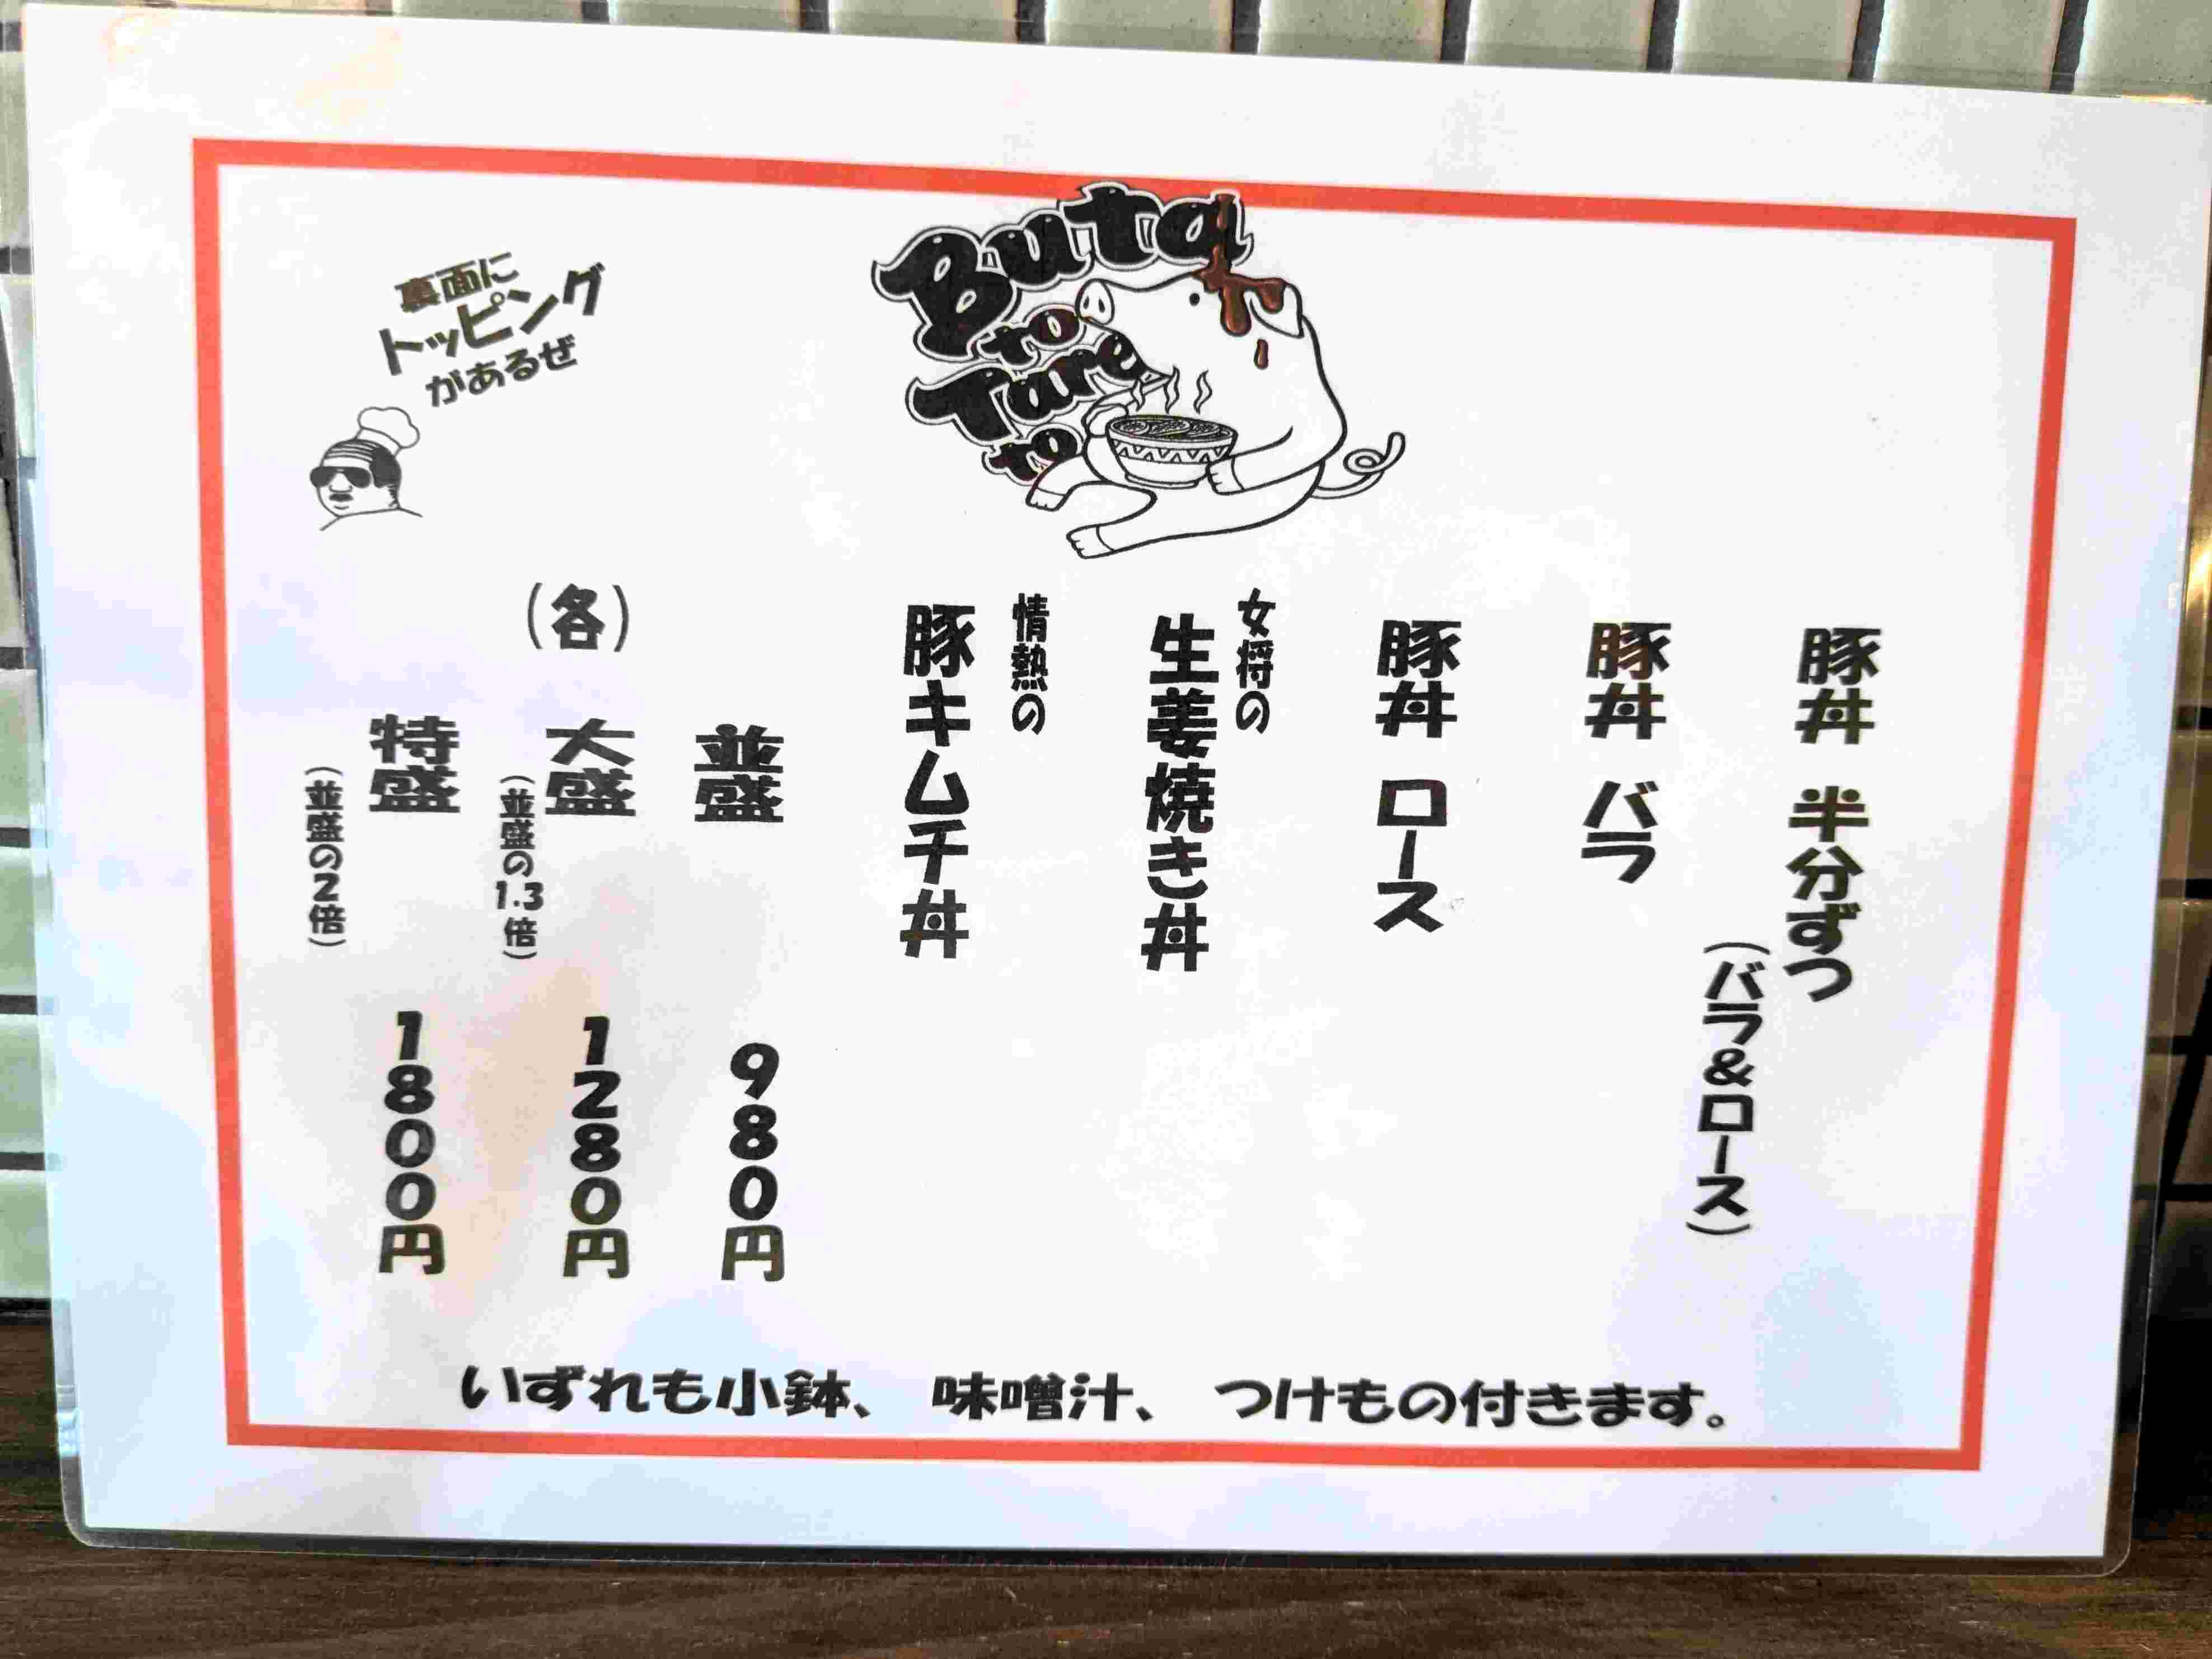 Buta
to
Tare
to
裏面に
トッピング
があるぜ
豚丼 半分ずつ
(バラ&ロース)
豚丼 バラ
豚丼 ロース
女将の
生姜焼き丼
情熱の
豚キムチ丼
(各)
並盛 980円
大盛 1280円
(並盛の1.3倍)
特盛 1800円
(並盛の2倍)
いずれも小鉢、 味噌汁、 つけもの付きます。